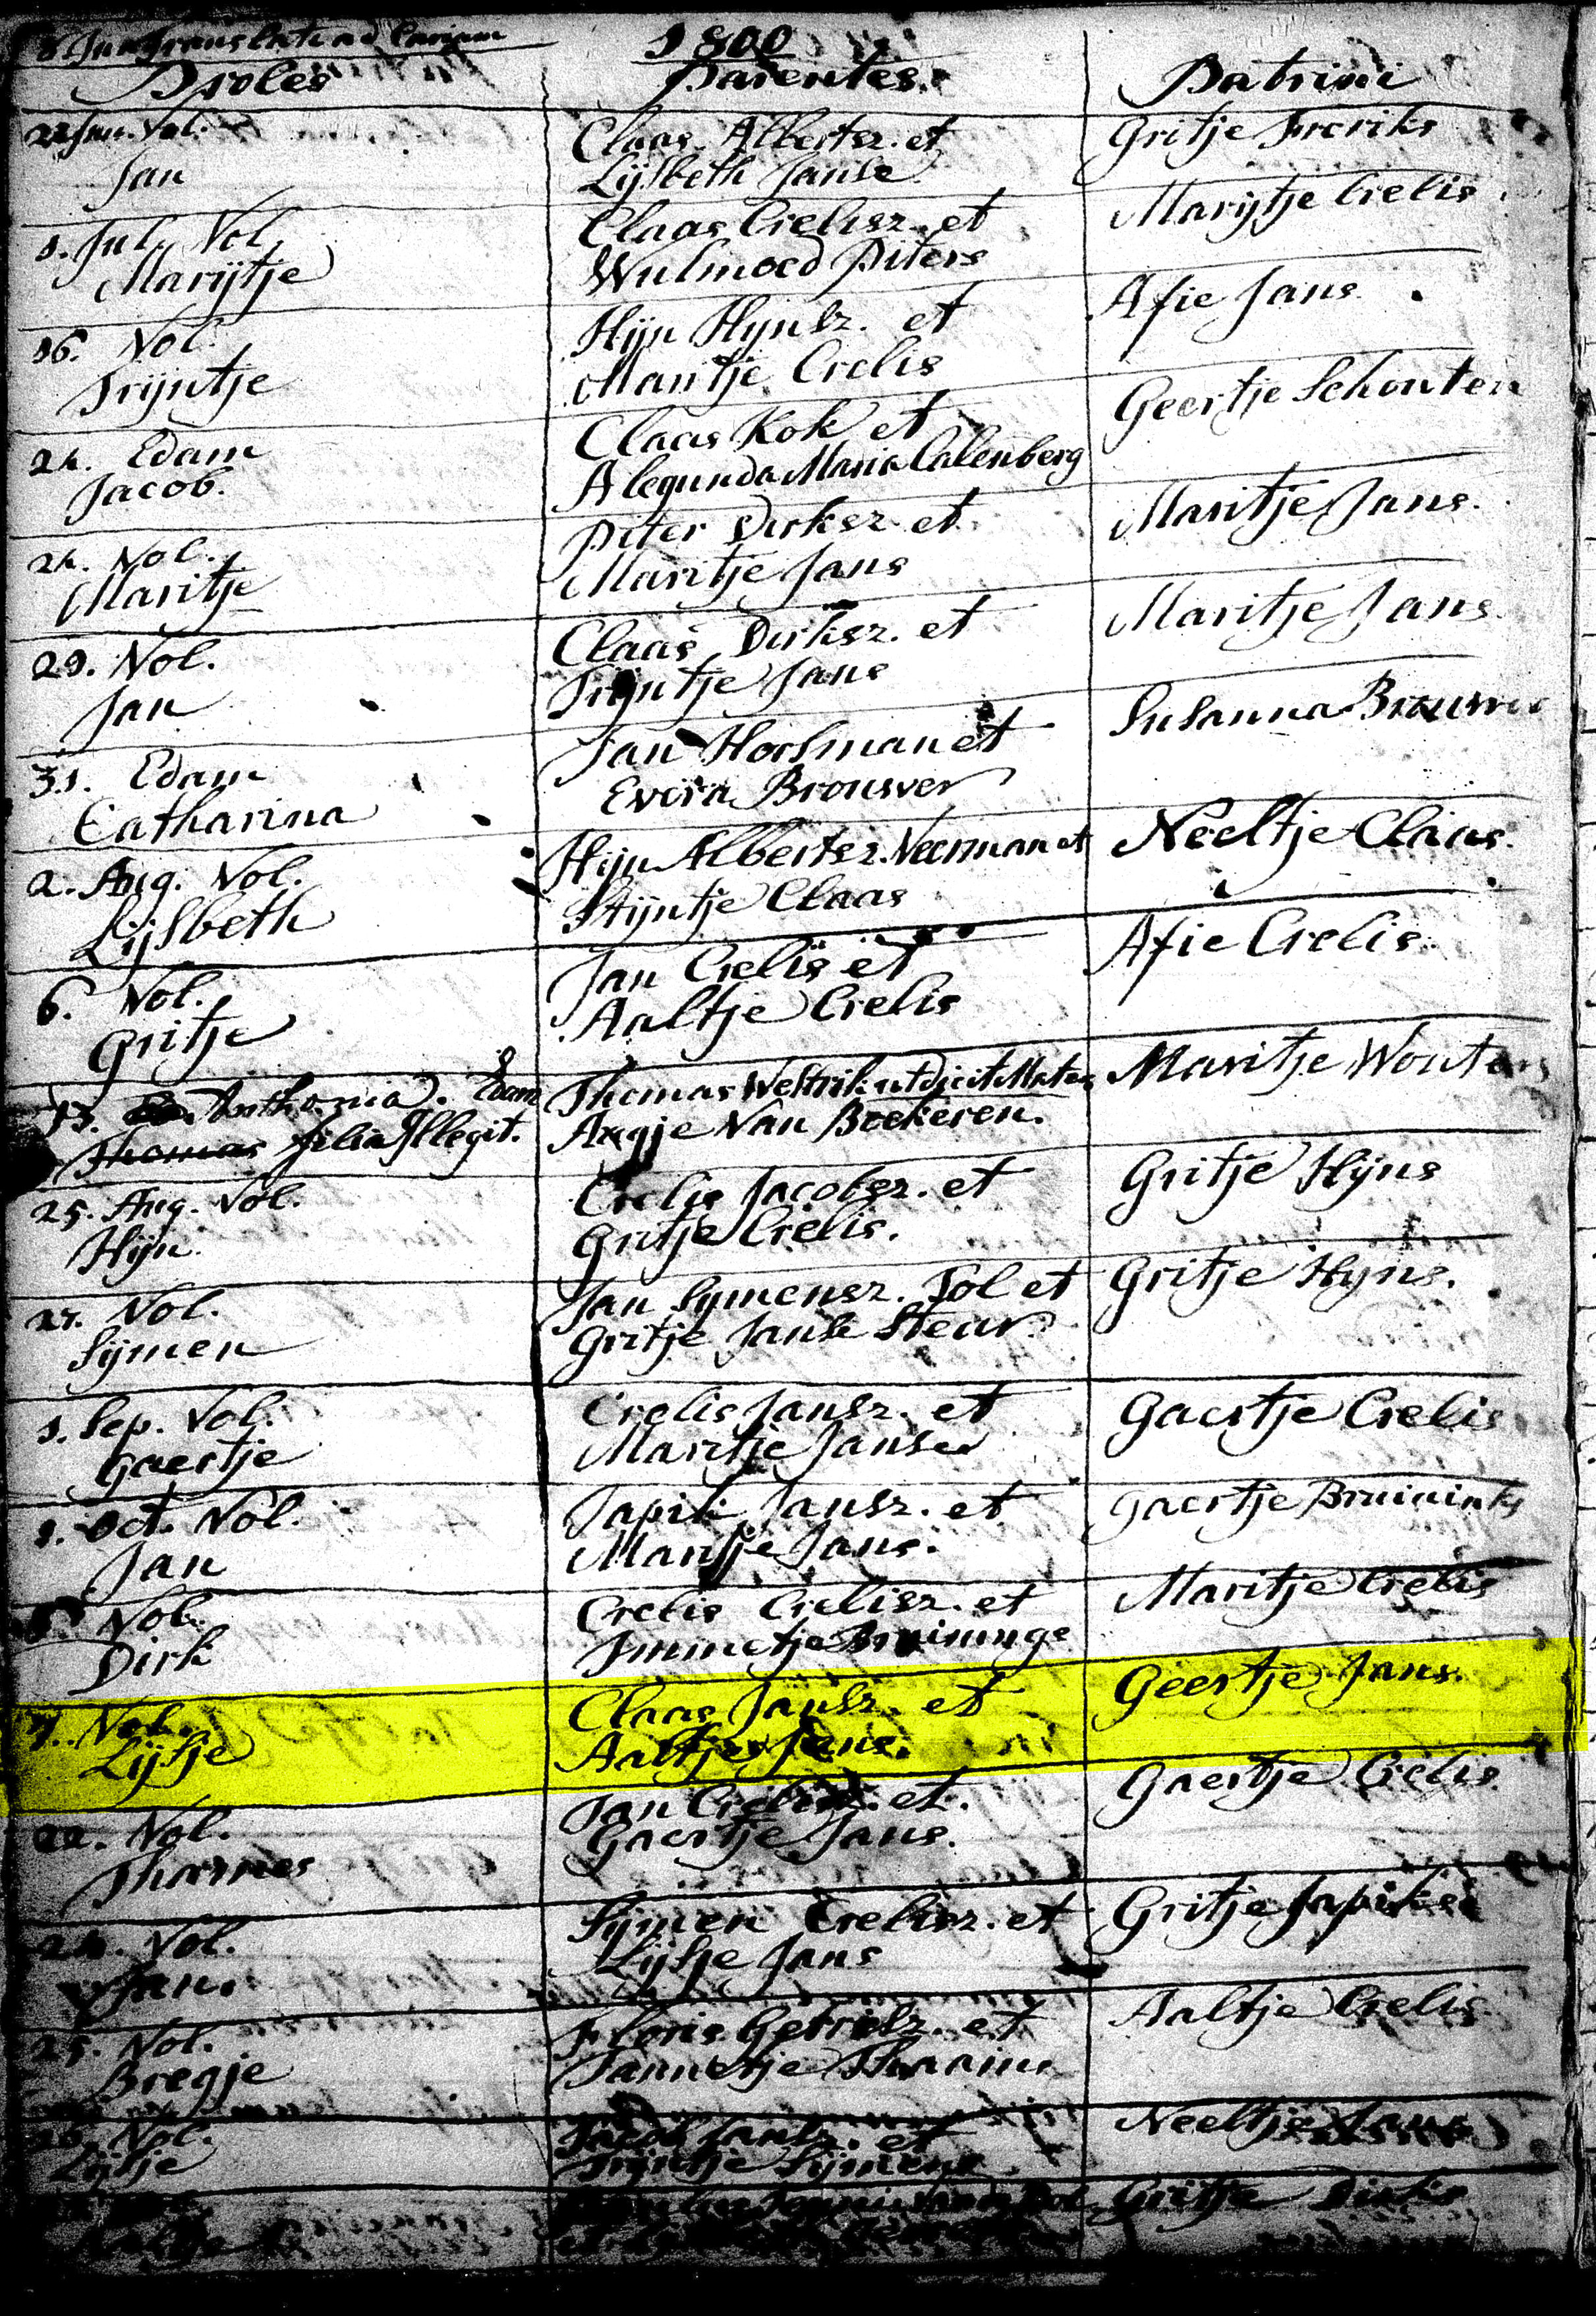 1800
Proles Parentes. Patrini
22 Jun. Vol. Claas Albertsz. et Gritje Freriks
Jan Lijsbeth Janse
1. Jul. Vol. Claas Crelisz. et Marijtje Crelis
Marijtje Wulmoed Piters
16. Vol. Hijn Hijnsz. et Afie Jans
Trijntje Maritje Crelis
24. Edam Claas Kok et Geertje Schouten
Jacob. Alegunda Maria Calenberg
24. Vol. Piter Dirksz. et Maritje Jans.
Maritje Maritje Jans
29. Vol. Claas Dirksz. et Maritje Jans
Jan Trijntje Jans
31. Edam Jan Horsman et Susanna Brouwer
Catharina Evera Brouwer
2. Aug. Vol. Hijn Albertsz. Veerman et Neeltje Claas.
Lijsbeth Stijntje Claas
6. Vol. Jan Crelis et Afie Crelis
Gritje Aaltje Crelis
13. Anthonia. Edam Thomas Westrik ut dicit Mater Maritje Wouters
Thomas filia Illegit. Angje Van Beekeren.
25. Aug. Vol. Crelis Jacobsz. et Gritje Hijns
Hijn Gritje Crelis.
27. Vol. Jan Symensz. Tol et Gritje Hijns.
Sijmen Gritje Janse Steur
1. Sep. Vol. Crelis Jansz. et Gaertje Crelis
Gaertje Maritje Janse
1. Oct. Vol. Japik Jansz. et Gaertje Bruinings
Jan Maritje Jans.
Vol. Crelis Crelisz. et Maritje Crelis
Dirk Immetje Bruininge
7. Vol. Claas Jansz. et Geertje Jans.
Lijsje Aaltje Jans.
22. Vol. Jan et. Gaertje Crelis
Thames Gaertje Jans.
24. Vol. Sijmen Crelisz. et Gritje Japiks
Jan. Lijsje Jans
25. Vol. Floris et Aaltje Crelis
Bregje Jannetje
Vol. Jacob Jansz. et Neeltje Jans
Lijsje Trijntje Symens
Gritje Dirks